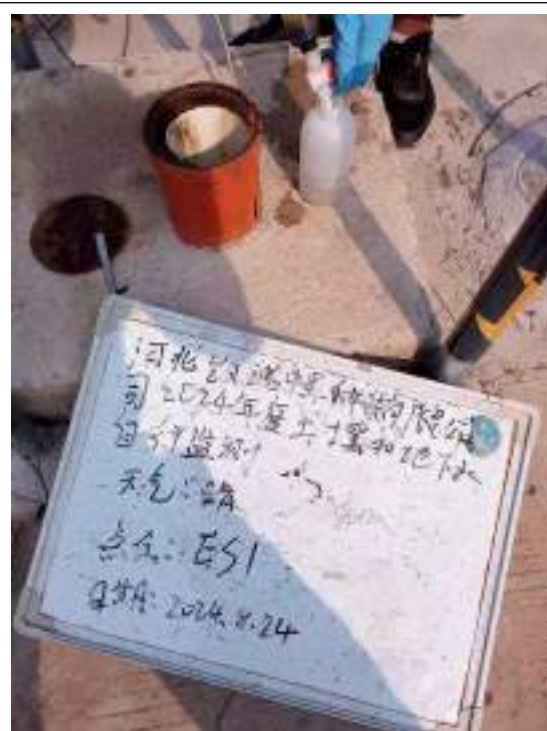 河北艾瑞环境科技有限公
司2024年度土壤和地下水
自行监测
天气:晴
点位:ES1
日期:2024.8.24